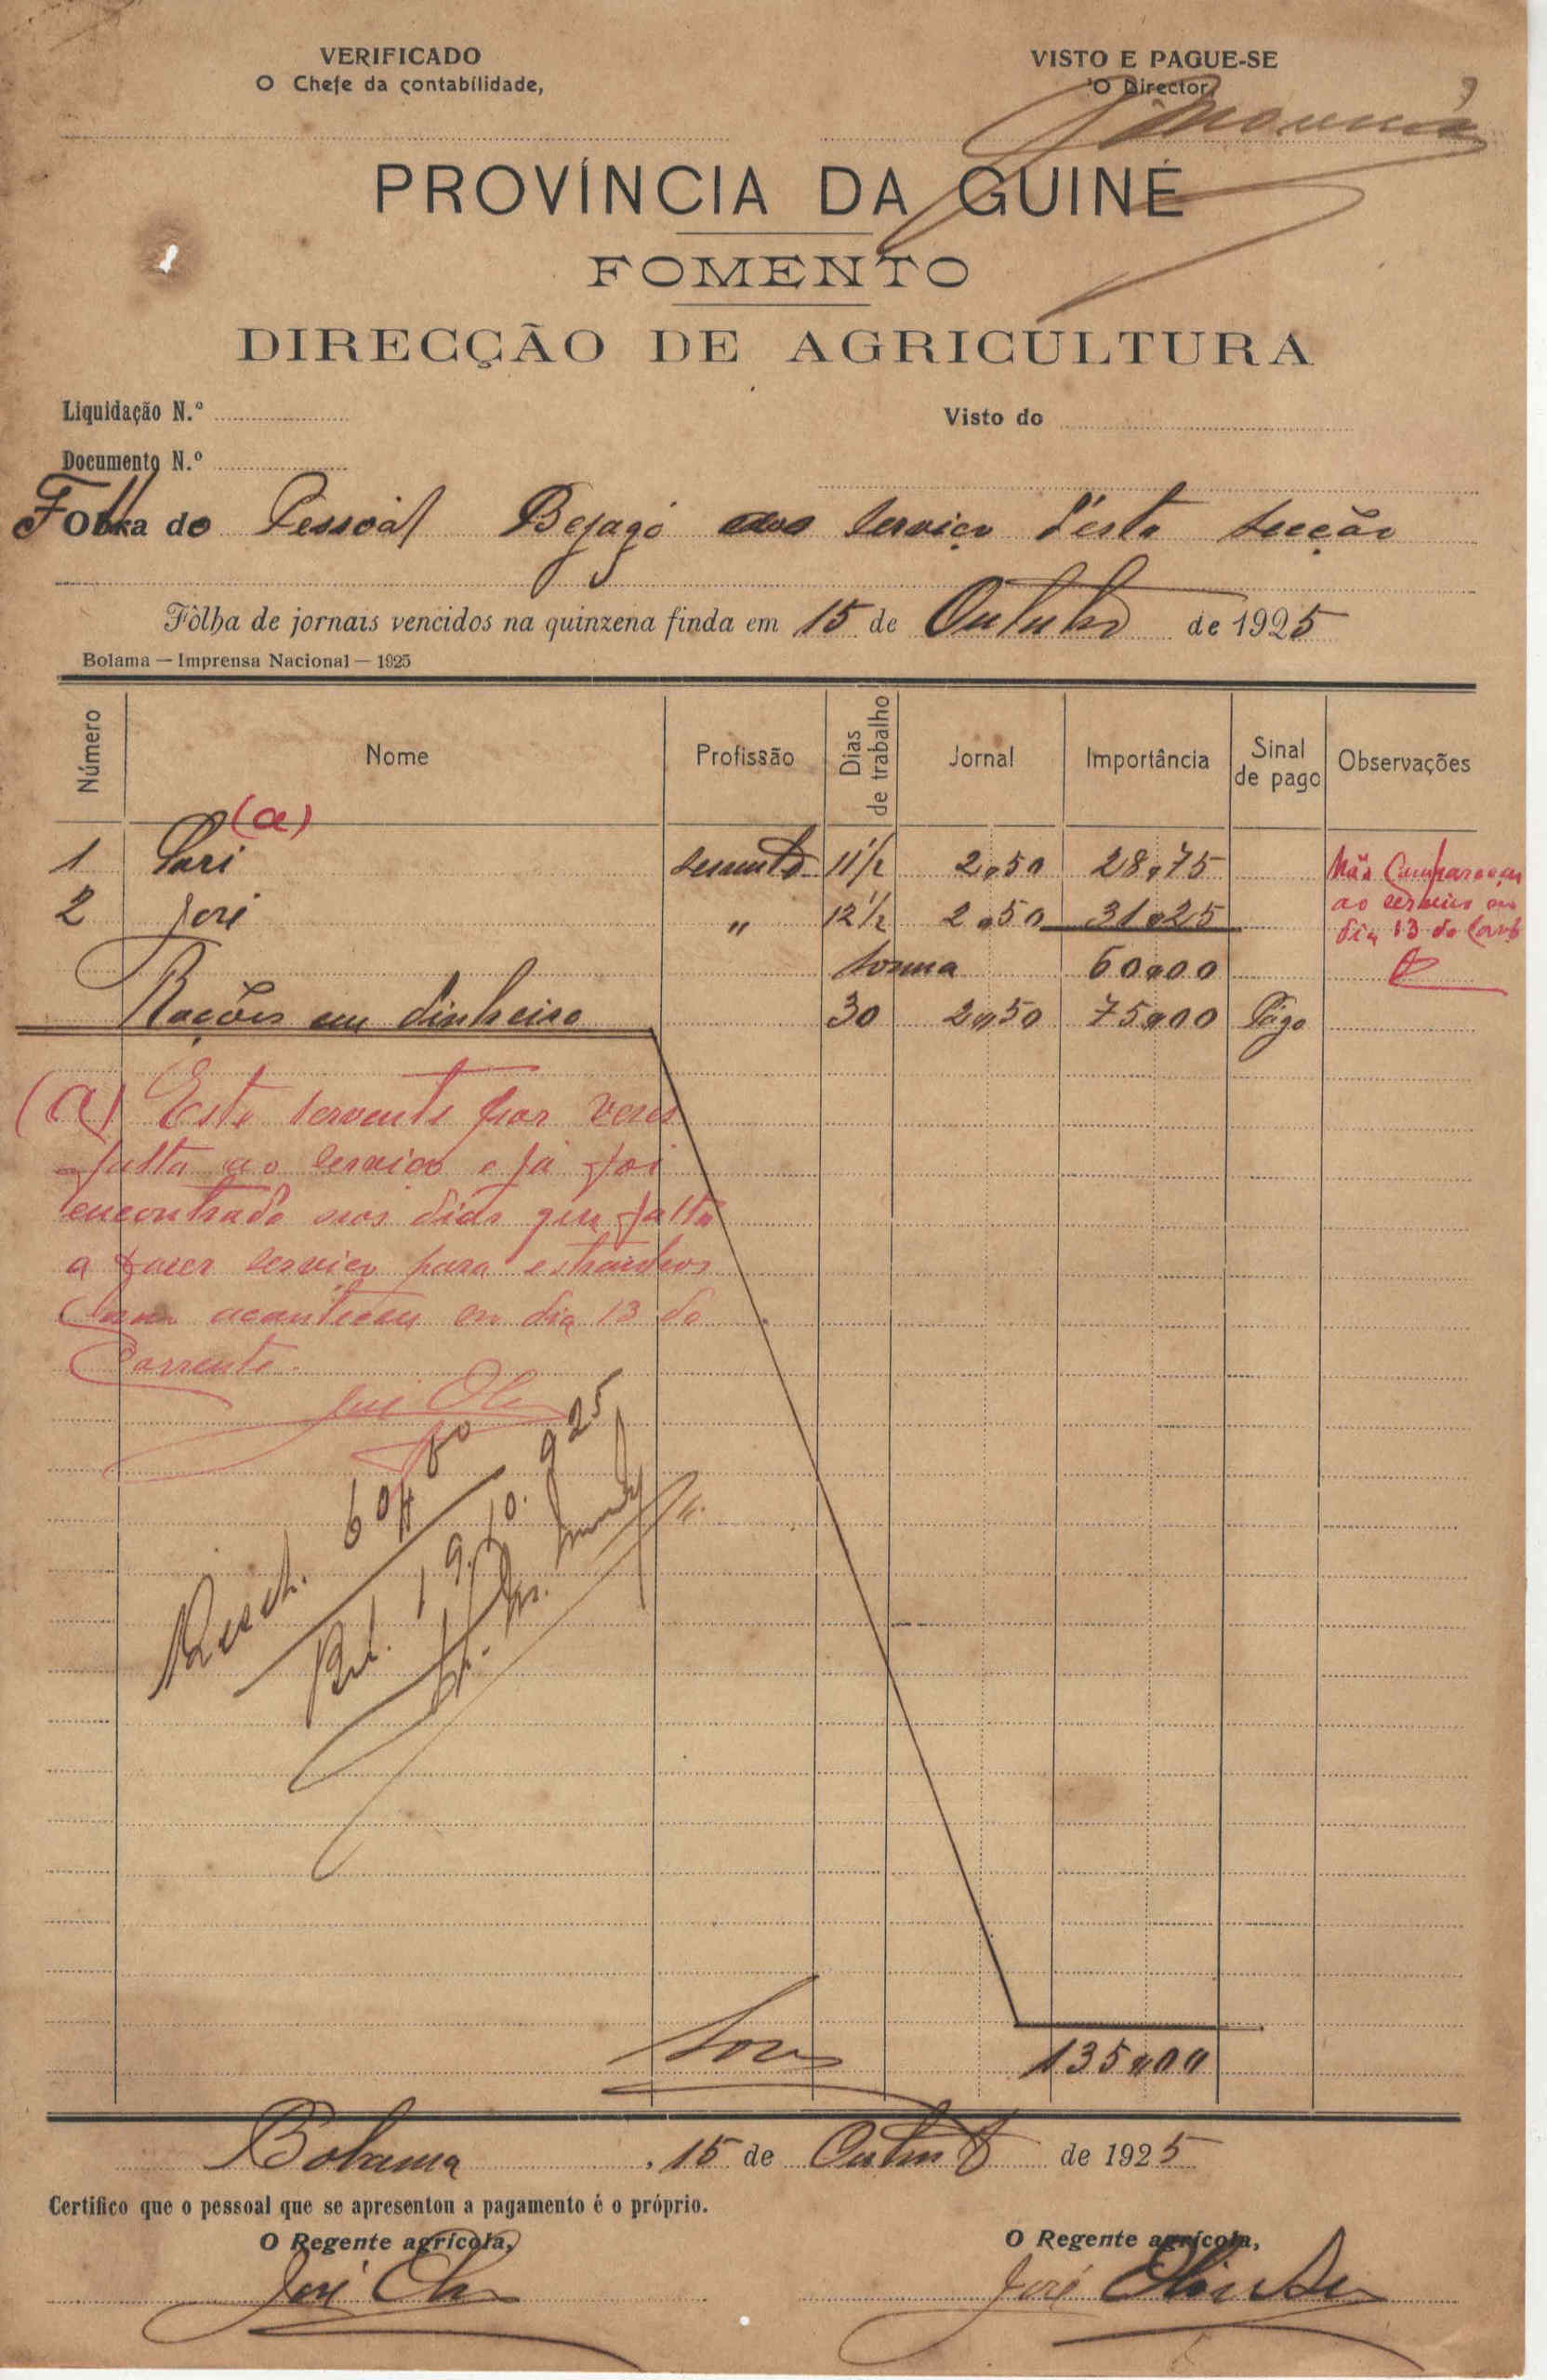 VERIFICADO
O Chefe da contabilidade,
VISTO E PAGUE-SE
O Director,
PROVÍNCIA DA GUINÉ
FOMENTO
DIRECÇÃO DE AGRICULTURA
Liquidação N.º
Visto do
Documento N.º
Folha do Pessoal Bejagó ao serviço d'esta secção
Fôlha de jornais vencidos na quinzena finda em 15 de Outubro de 1925
Bolama — Imprensa Nacional — 1925
Número Nome Profissão Dias de trabalho Jornal Importância Sinal de pago Observações
(a)
1 servente 11 1/2 2,50 28,75 Não compareceu
2 José " 12 1/2 2,50 31,25 ao serviço no
dia 13 do corrte
Somma 60,00
Rações em dinheiro 30 2,50 75,00 Pago
(a) Este servente por vezes
falta ao serviço e já foi
encontrado nos dias que falta
a fazer serviço para estranhos
Como aconteceu no dia 13 do
Corrente.
José
60$00
19.10.925
Soma 135,00
Bolama, 15 de Outubro de 1925
Certifico que o pessoal que se apresentou a pagamento é o próprio.
O Regente agrícola,
O Regente agrícola,
José
José